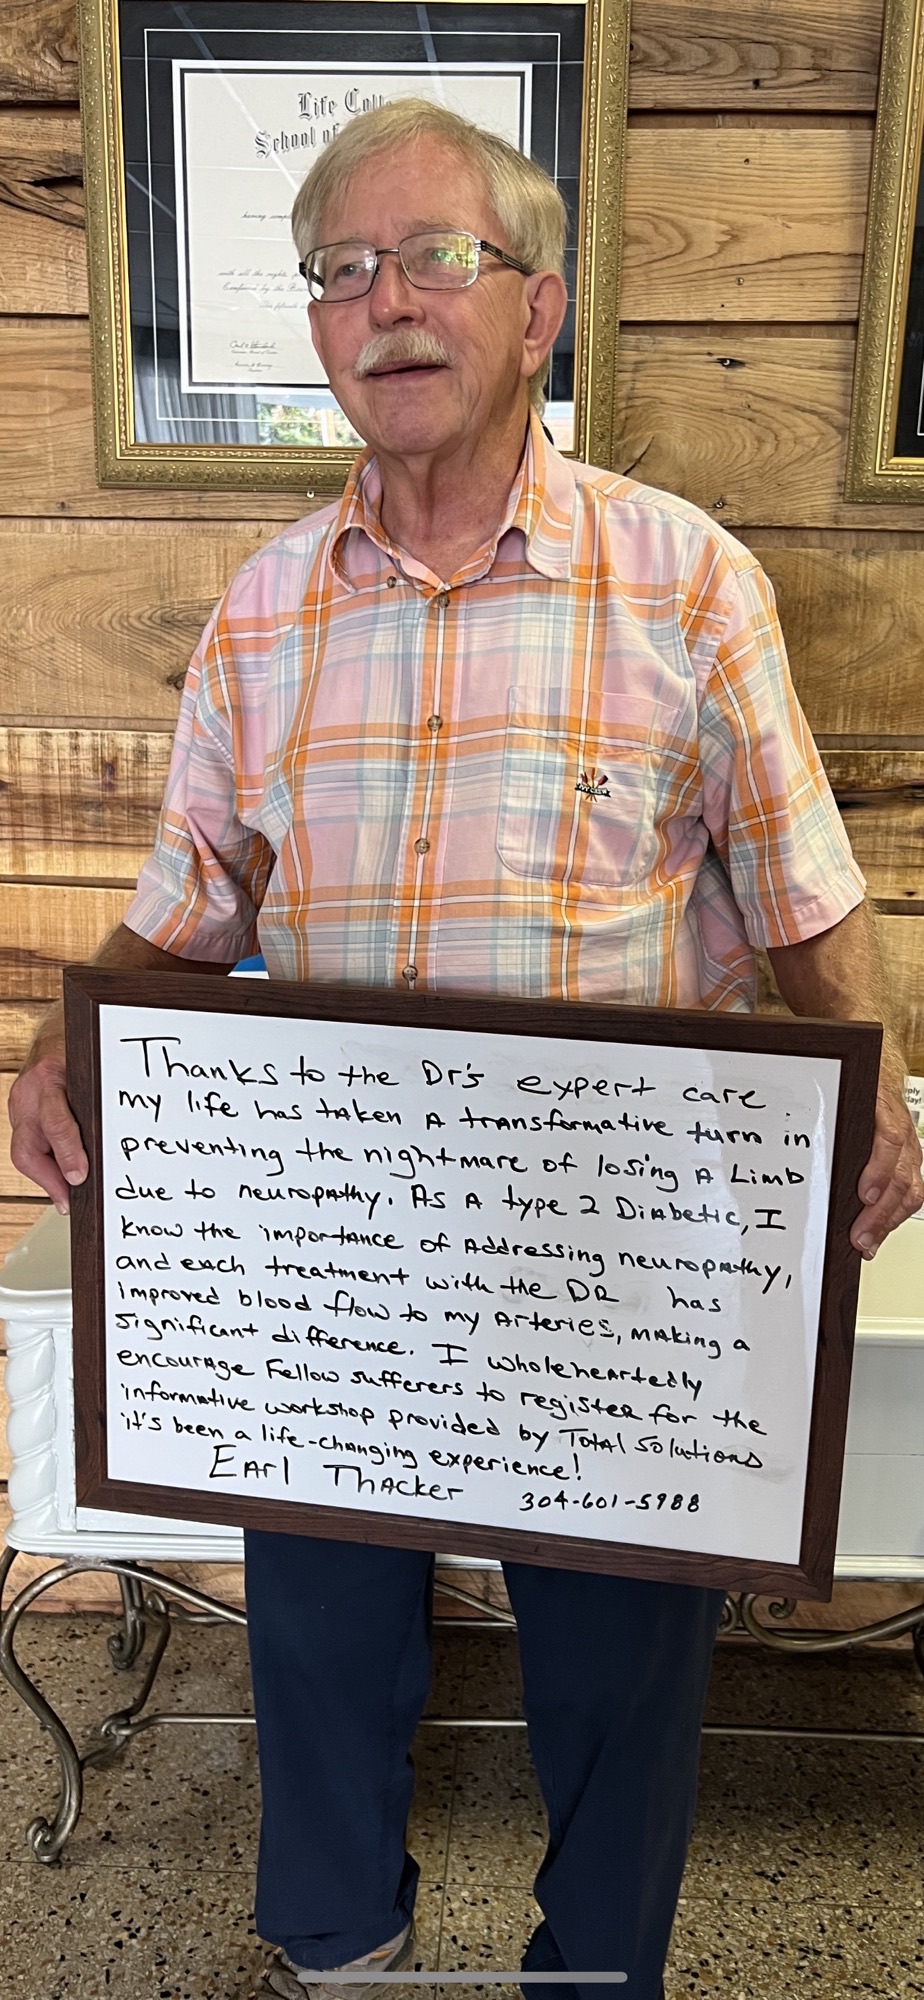 Life Coll
School of
having compl
with all the rights, p
Conferred by the Boar
Thanks to the Dr's expert care
my life has taken A transformative turn in
preventing the nightmare of losing A Limb
due to neuropathy. As A type 2 Diabetic, I
know the importance of Addressing neuropathy,
and each treatment with the DR has
improved blood flow to my Arteries, making a
significant difference. I wholeheartedly
encourage Fellow sufferers to register for the
informative workshop provided by Total Solutions
it's been a life-changing experience!
Earl Thacker 304-601-5988